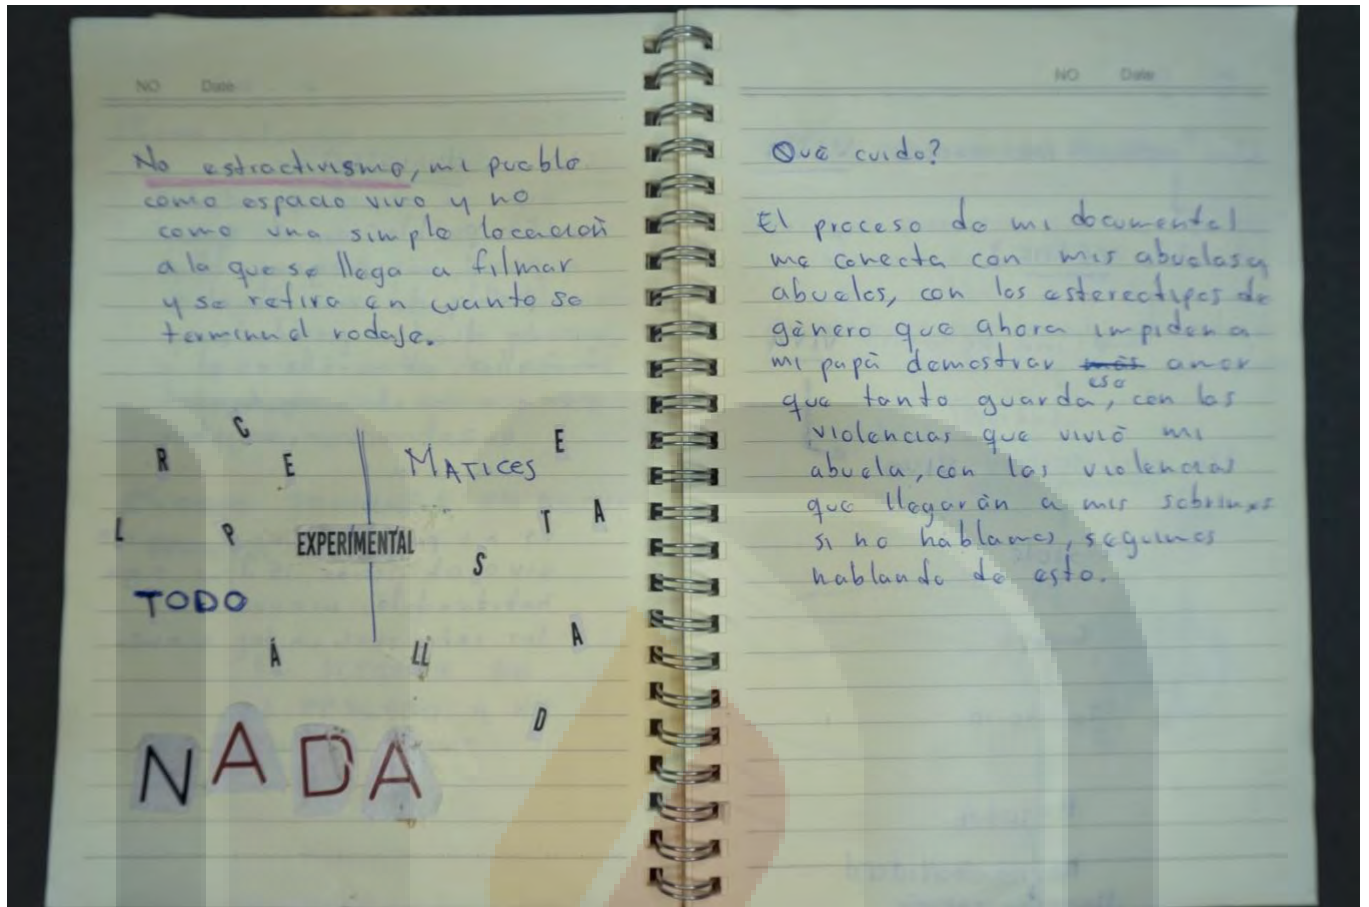 NO Date
No estractivismo, mi pueblo
como espacio vivo y no
como una simple locación
a la que se llega a filmar
y se retira en cuanto se
termina el rodaje.
C
R E MATICES E
L P EXPERIMENTAL T A
S
TODO
A LL A
D
NADA
NO Date
Qué cuido?
El proceso de mi documental
me conecta con mis abuelas y
abuelos, con los estereotipos de
género que ahora impiden a
mi papá demostrar más amor
eso
que tanto guarda, con las
violencias que vivió mi
abuela, con las violencias
que llegarán a mis sobrinxs
si no hablamos, seguimos
hablando de esto.